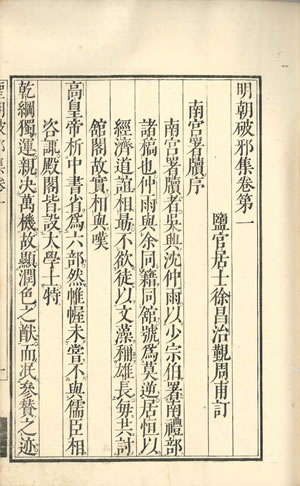 明朝破邪集卷第一
鹽官居士徐昌治覲周甫訂
南宮署牘序
南宮署牘者吳興沈仲雨以少宗伯署南禮部
諸稿也仲雨與余同籍同館號爲莫逆居恒以
經濟道誼相勗不欲徒以文藻稱雄長每共討
館閣故實相與嘆
高皇帝析中書省爲六部然帷幄未嘗不與儒臣相
咨諏殿閣皆設大學士特
乾綱獨運親決萬機故顯潤色之猷而泯參贊之迹
聖朝破邪集卷一